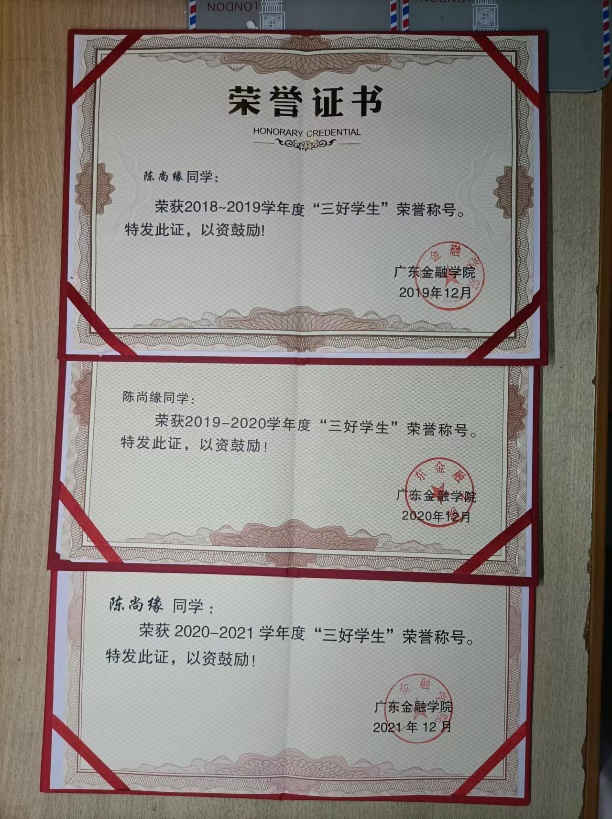 LONDON
LONDON
荣誉证书
HONORARY CREDENTIAL
陈尚缘同学：
荣获2018~2019学年度“三好学生”荣誉称号。
特发此证，以资鼓励!
广东金融学院
2019年12月
陈尚缘同学：
荣获2019-2020学年度“三好学生”荣誉称号。
特发此证，以资鼓励!
广东金融学院
2020年12月
陈尚缘 同学：
荣获 2020-2021 学年度“三好学生”荣誉称号。
特发此证，以资鼓励!
广东金融学院
2021 年 12 月